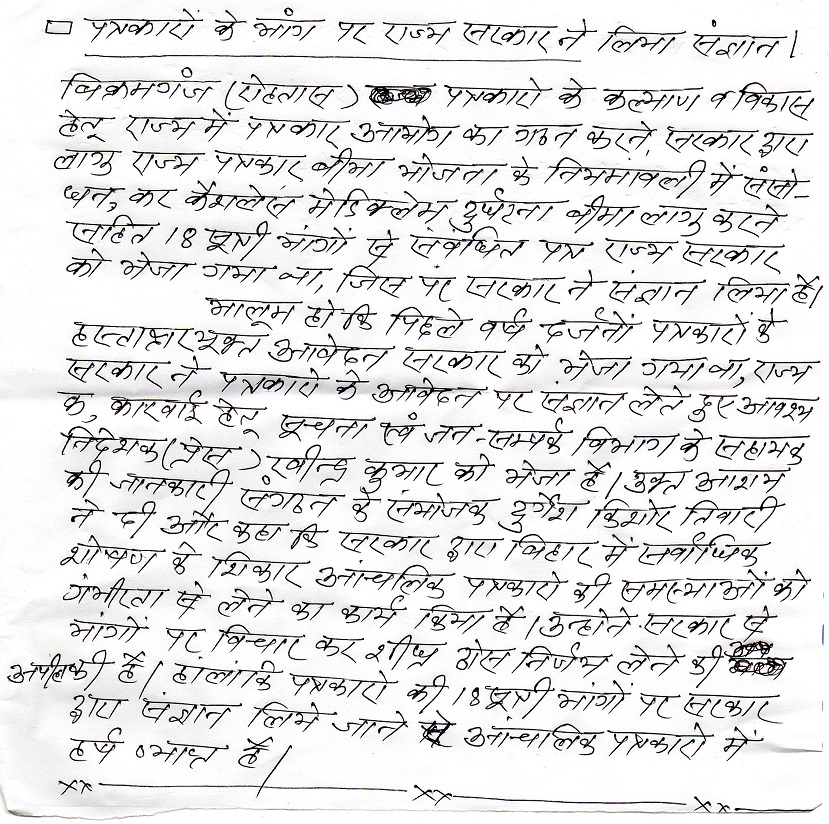 □ पत्रकारों के मांग पर राज्य सरकार ने लिया संज्ञान।
बिक्रमगंज (रोहतास) पत्रकारो के कल्याण व विकास
हेतू राज्य में पत्रकार आयोग का गठन करने, सरकार द्वारा
लागु राज्य पत्रकार बीमा योजना के नियमावली में संसो-
धन, कर कैशलेस मेडिक्लेम, दुर्घटना बीमा लागु करने
सहित 18 सूत्री मांगों से संबंधित पत्र राज्य सरकार
को भेजा गया था, जिस पर सरकार ने संज्ञान लिया है।
मालूम हो कि पिछले वर्ष दर्जनों पत्रकारों के
हस्ताक्षरयुक्त आवेदन सरकार को भेजा गया था, राज्य
सरकार ने पत्रकारो के आवेदन पर संज्ञान लेते हुए आवश्य
क, कारवाई हेतू सूचना एवं जन-सम्पर्क विभाग के सहायक
निदेशक (प्रेस) रवीन्द्र कुमार को भेजा है। उक्त आशय
की जानकारी संगठन के संयोजक दुर्गेश किशोर तिवारी
ने दी और कहा कि सरकार द्वारा बिहार में सर्वाधिक
शोषण के शिकार आंचलिक पत्रकारो की समस्याओं को
गंभीरता से लेने का कार्य किया है। उन्होने सरकार से
मांगों पर विचार कर शीघ्र ठोस निर्णय लेने की
अपील की है। हालांकि पत्रकारो की 18 सूत्री मांगों पर सरकार
द्वारा संज्ञान लिये जाने से आंचलिक पत्रकारो में
हर्ष व्याप्त है।
xx xx xx